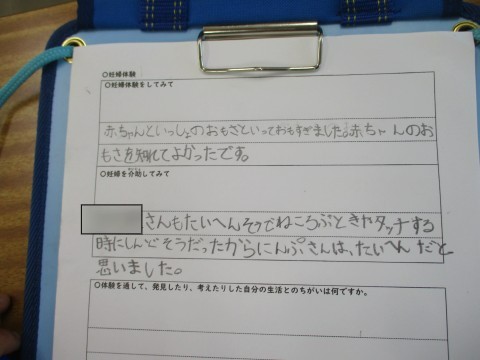 〇妊婦体験
〇妊婦体験をしてみて
赤ちゃんといっしょのおもさといっておもすぎました。赤ちゃんのお
もさを知れてよかったです。
〇妊婦を介助してみて
さんもたいへんそうでねころぶときやタッチする
時にしんどそうだったからにんぷさんは、たいへんだと
思いました。
〇体験を通して、発見したり、考えたりした自分の生活とのちがいは何ですか。